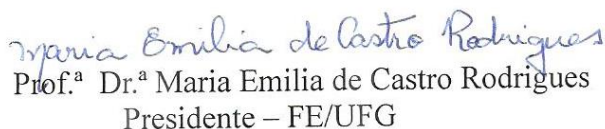 Maria Emilia de Castro Rodrigues
Prof.ª Dr.ª Maria Emilia de Castro Rodrigues
Presidente – FE/UFG